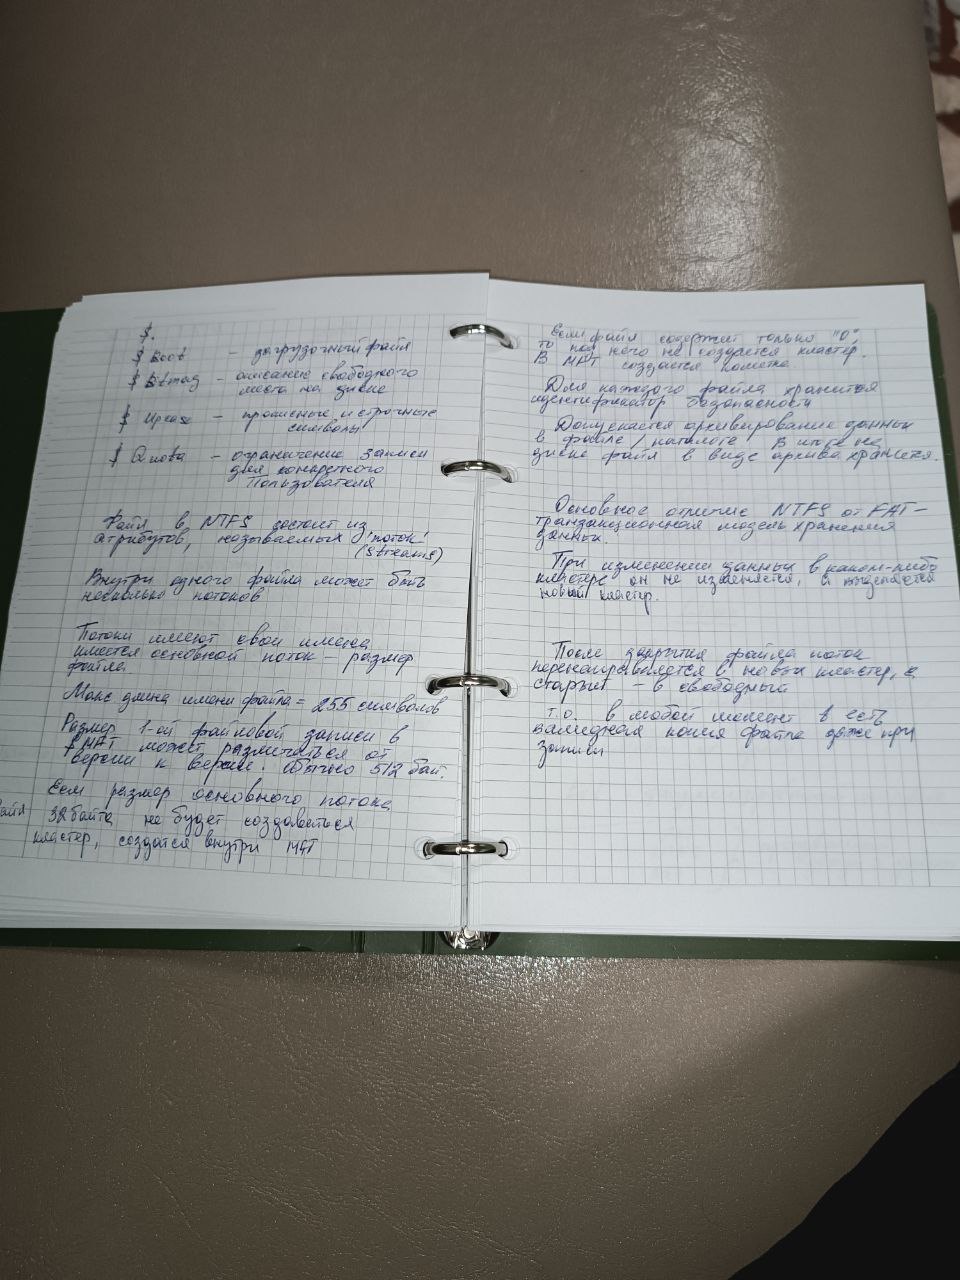 $.
$ Boot - загрузочный файл
$ Bitmap - описание свободного
места на диске
$ Upcase - прописные и строчные
символы
$ Quota - ограничение записи
для конкретного
Пользователя
Файл в NTFS состоит из
атрибутов, называемых "поток"
(Streams)
Внутри одного файла может быть
несколько потоков
Потоки имеют свои имена
имеется основной поток - размер
файла
Макс длина имени файла = 255 символов
Размер 1-ой файловой записи в
MFT может различаться от
версии к версии. Обычно 512 байт.
Если размер основного потока
32 байта не будет создаваться
кластер, создатся внутри MFT
Если файл содержит только "0",
то под него не создается кластер.
В MFT создается пометка
Для каждого файла хранится
идентификатор безопасности
Допускается архивирование данных
в файле / каталоге В итоге на
диске файл в виде архива хранится.
Основное отличие NTFS от FAT -
транзакционная модель хранения
данных.
При изменении данных в каком-либо
кластере он не изменяется, а выделяется
новый кластер.
После закрытия файла поток
перенаправляется в новый кластер, а
старый - в свободный
т.о. в любой момент в есть
копия файла даже при
записи